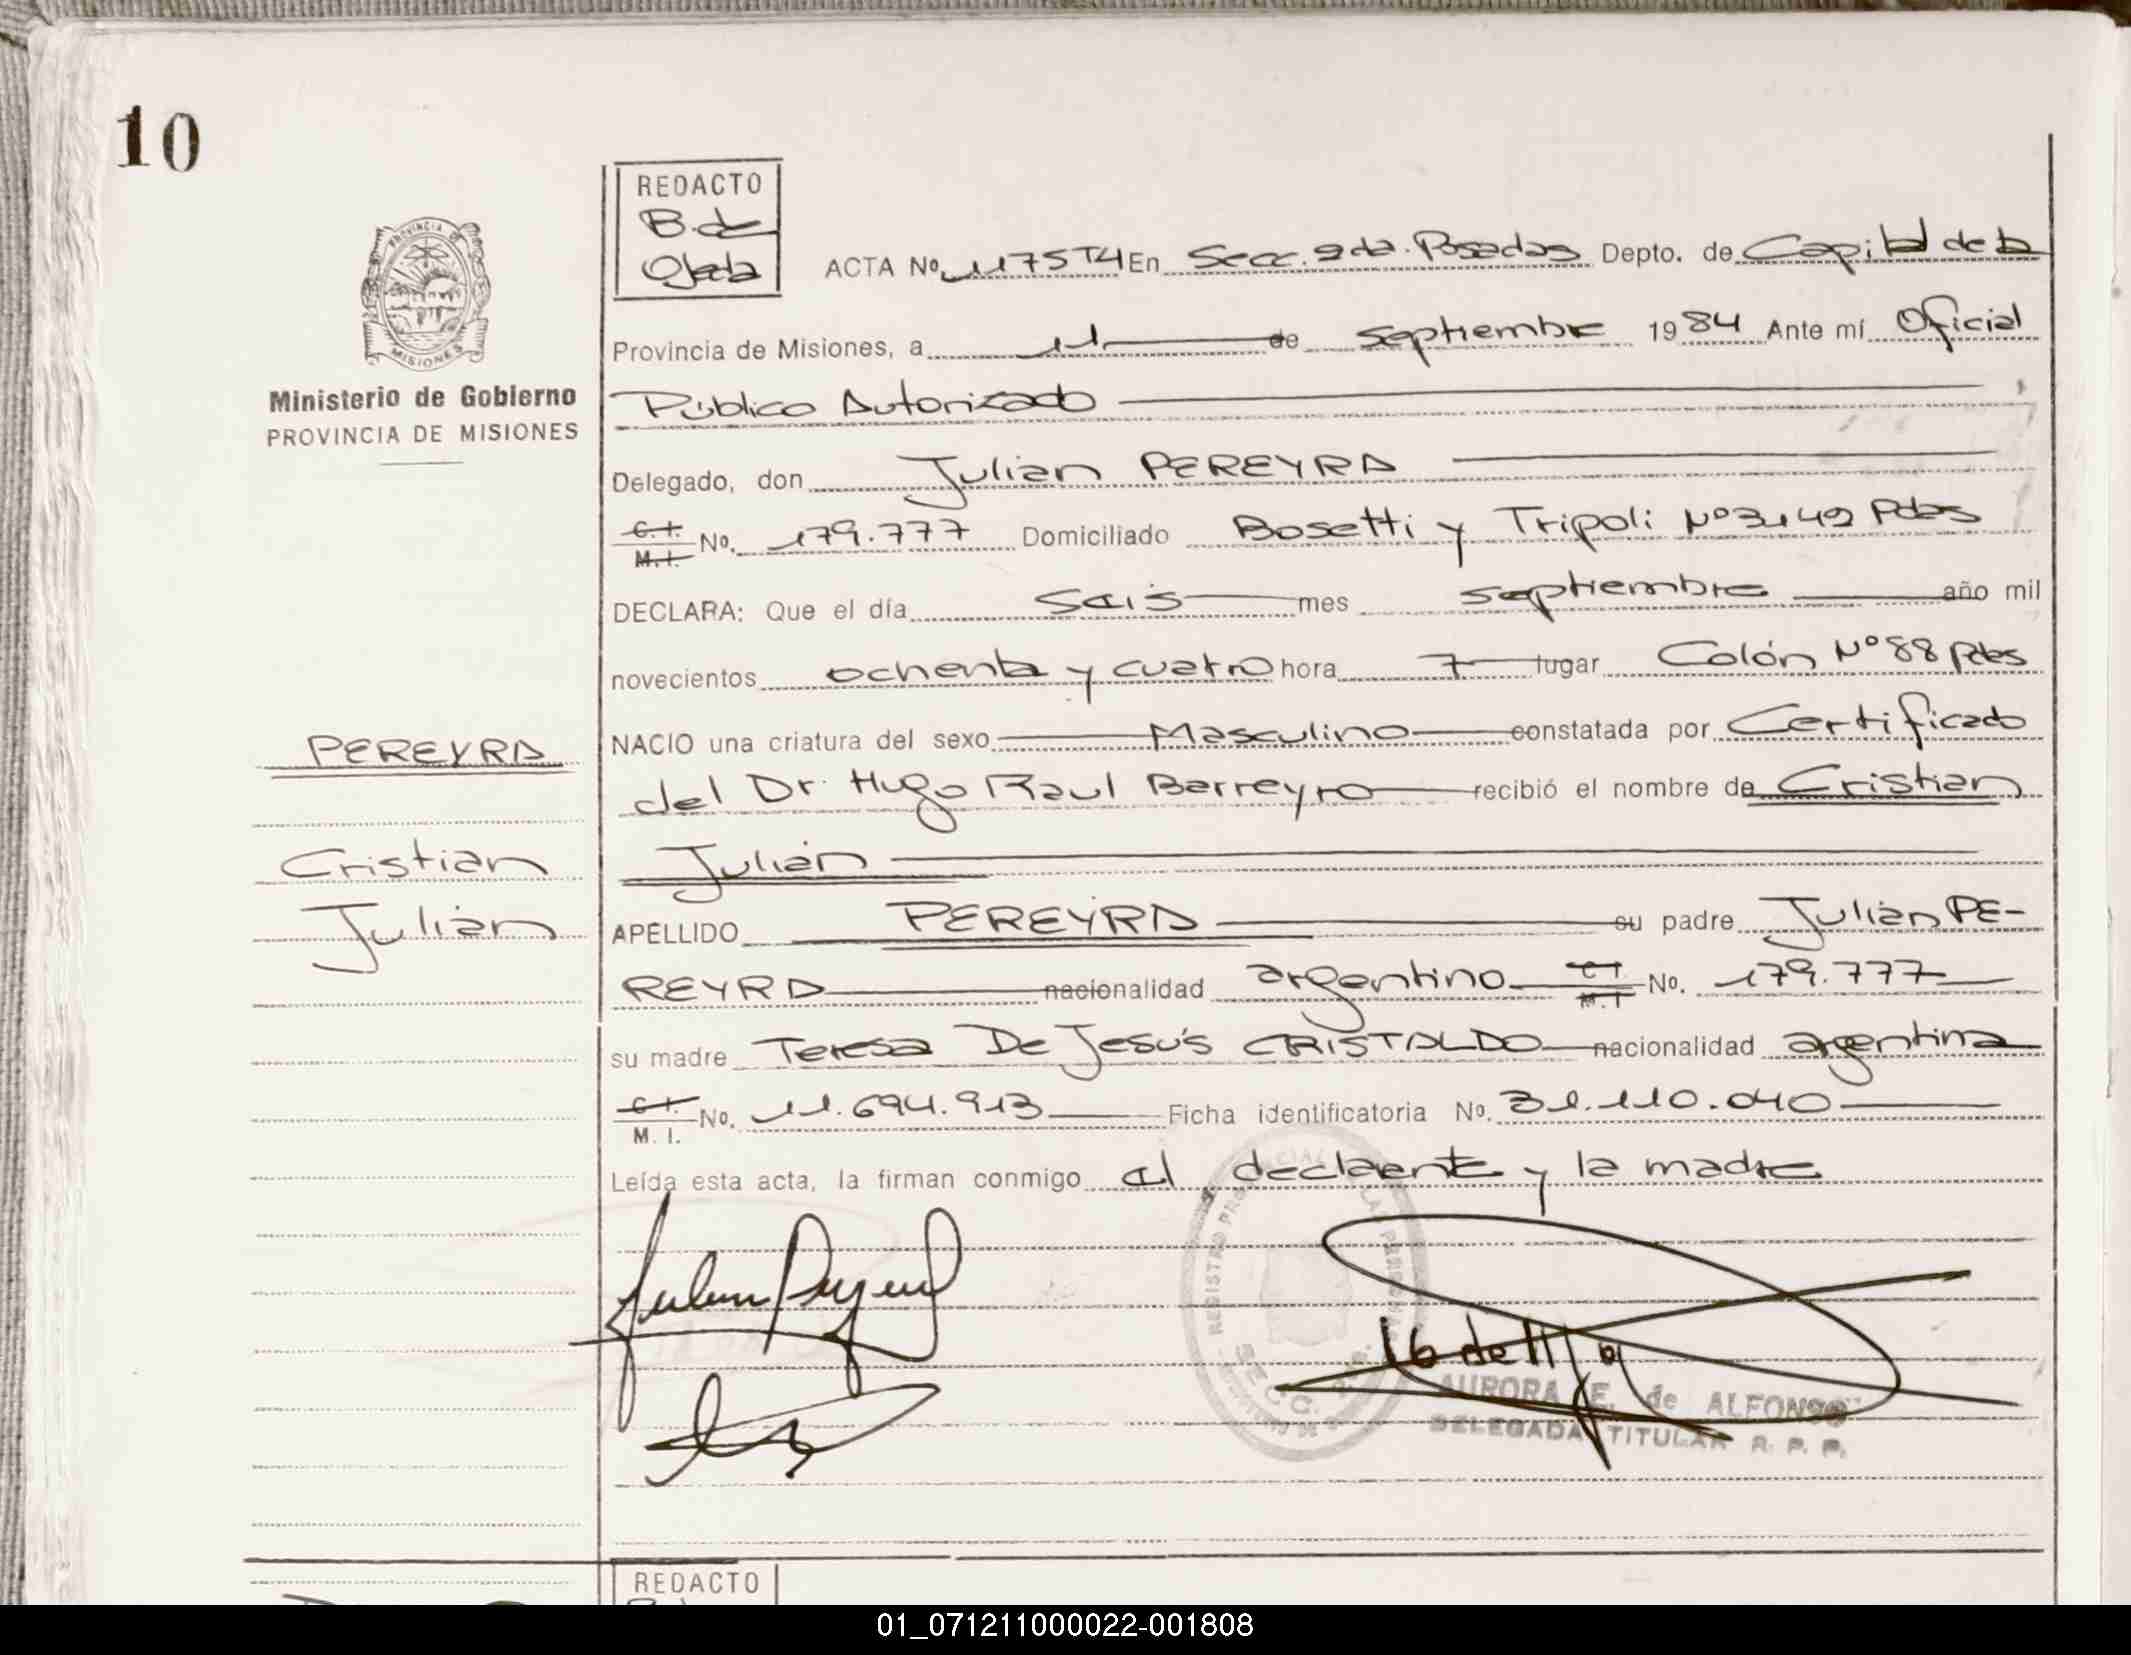 10
REDACTO
B. de
Ojeda
ACTA No. 1175T4 En Secc. 2da. Posadas Depto. de Capital de la
PROVINCIA DE
MISIONES
Provincia de Misiones, a 11 de septiembre 1984 Ante mí Oficial
Ministerio de Gobierno
PROVINCIA DE MISIONES
Público Autorizado
Delegado, don Julián PEREYRA
C.I. M.I. No. 179.777 Domiciliado Bosetti y Tripoli Nº 3149 Pdas
DECLARA: Que el día seis mes septiembre año mil
novecientos ochenta y cuatro hora 7 lugar Colón Nº 88 Pdas
PEREYRA
NACIO una criatura del sexo Masculino constatada por Certificado
del Dr. Hugo Raul Barreyro recibió el nombre de Cristian
Cristian
Julián
Julián
APELLIDO PEREYRA su padre Julián PE-
REYRA nacionalidad argentino C.I. M.I. No. 179.777
su madre Teresa De Jesús CRISTALDO nacionalidad argentina
C.I. M.I. No. 11.694.913 Ficha identificatoria No. 31.110.040
Leída esta acta, la firman conmigo el declarente y la madre
REGISTRO PROVINCIAL DE LAS PERSONAS
SECC.
AURORA E. de ALFONSO
DELEGADA TITULAR R. P. P.
REDACTO
01_071211000022-001808